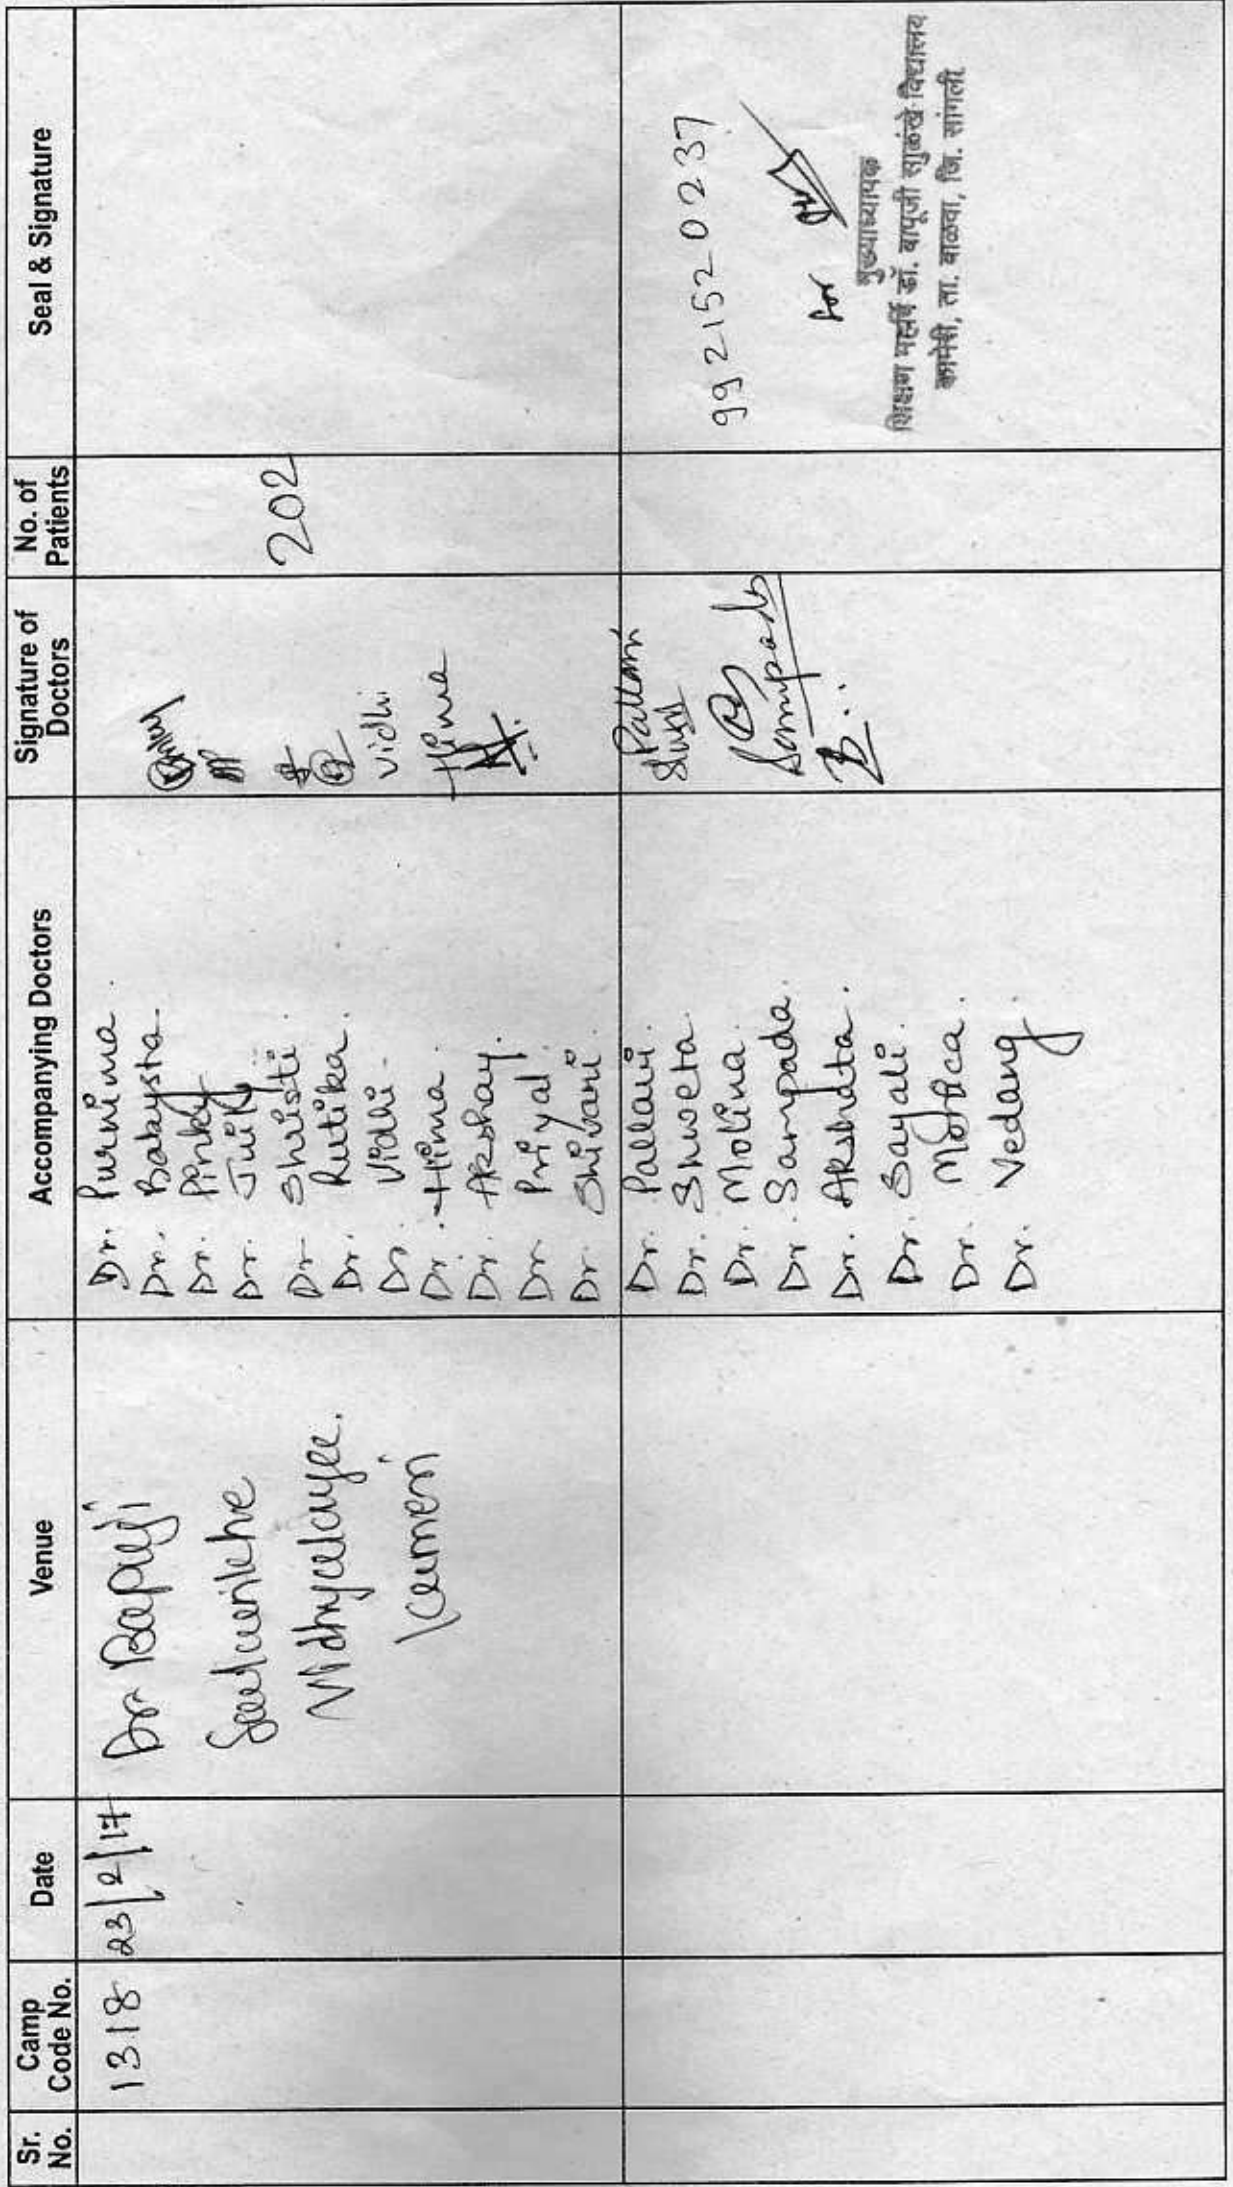 Sr. No.
Camp Code No.
Date
Venue
Accompanying Doctors
Signature of Doctors
No. of Patients
Seal & Signature
1318
23/2/17
Dr Bapuji
Salunkhe
Vidhyalayee.
Kameri
Dr. Purnima.
Dr. Bakysta.
Dr. Pinky
Dr. Juily
Dr Shristi.
Dr. Rutika.
Dr. Vidhi.
Dr. Hima.
Dr. Akshay.
Dr. Priyal.
Dr. Shivani.
Vidhi
Hima
202
Dr. Pallavi.
Dr. Shweta.
Dr. Molina.
Dr. Sampada.
Dr. Akshata.
Dr. Sayali.
Dr.
Dr. Vedang.
Pallavi
Sampada
9921520237
मुख्याध्यापक
शिक्षण महर्षि डॉ. बापूजी साळुंखे विद्यालय
कामेरी, ता. वाळवा, जि. सांगली.